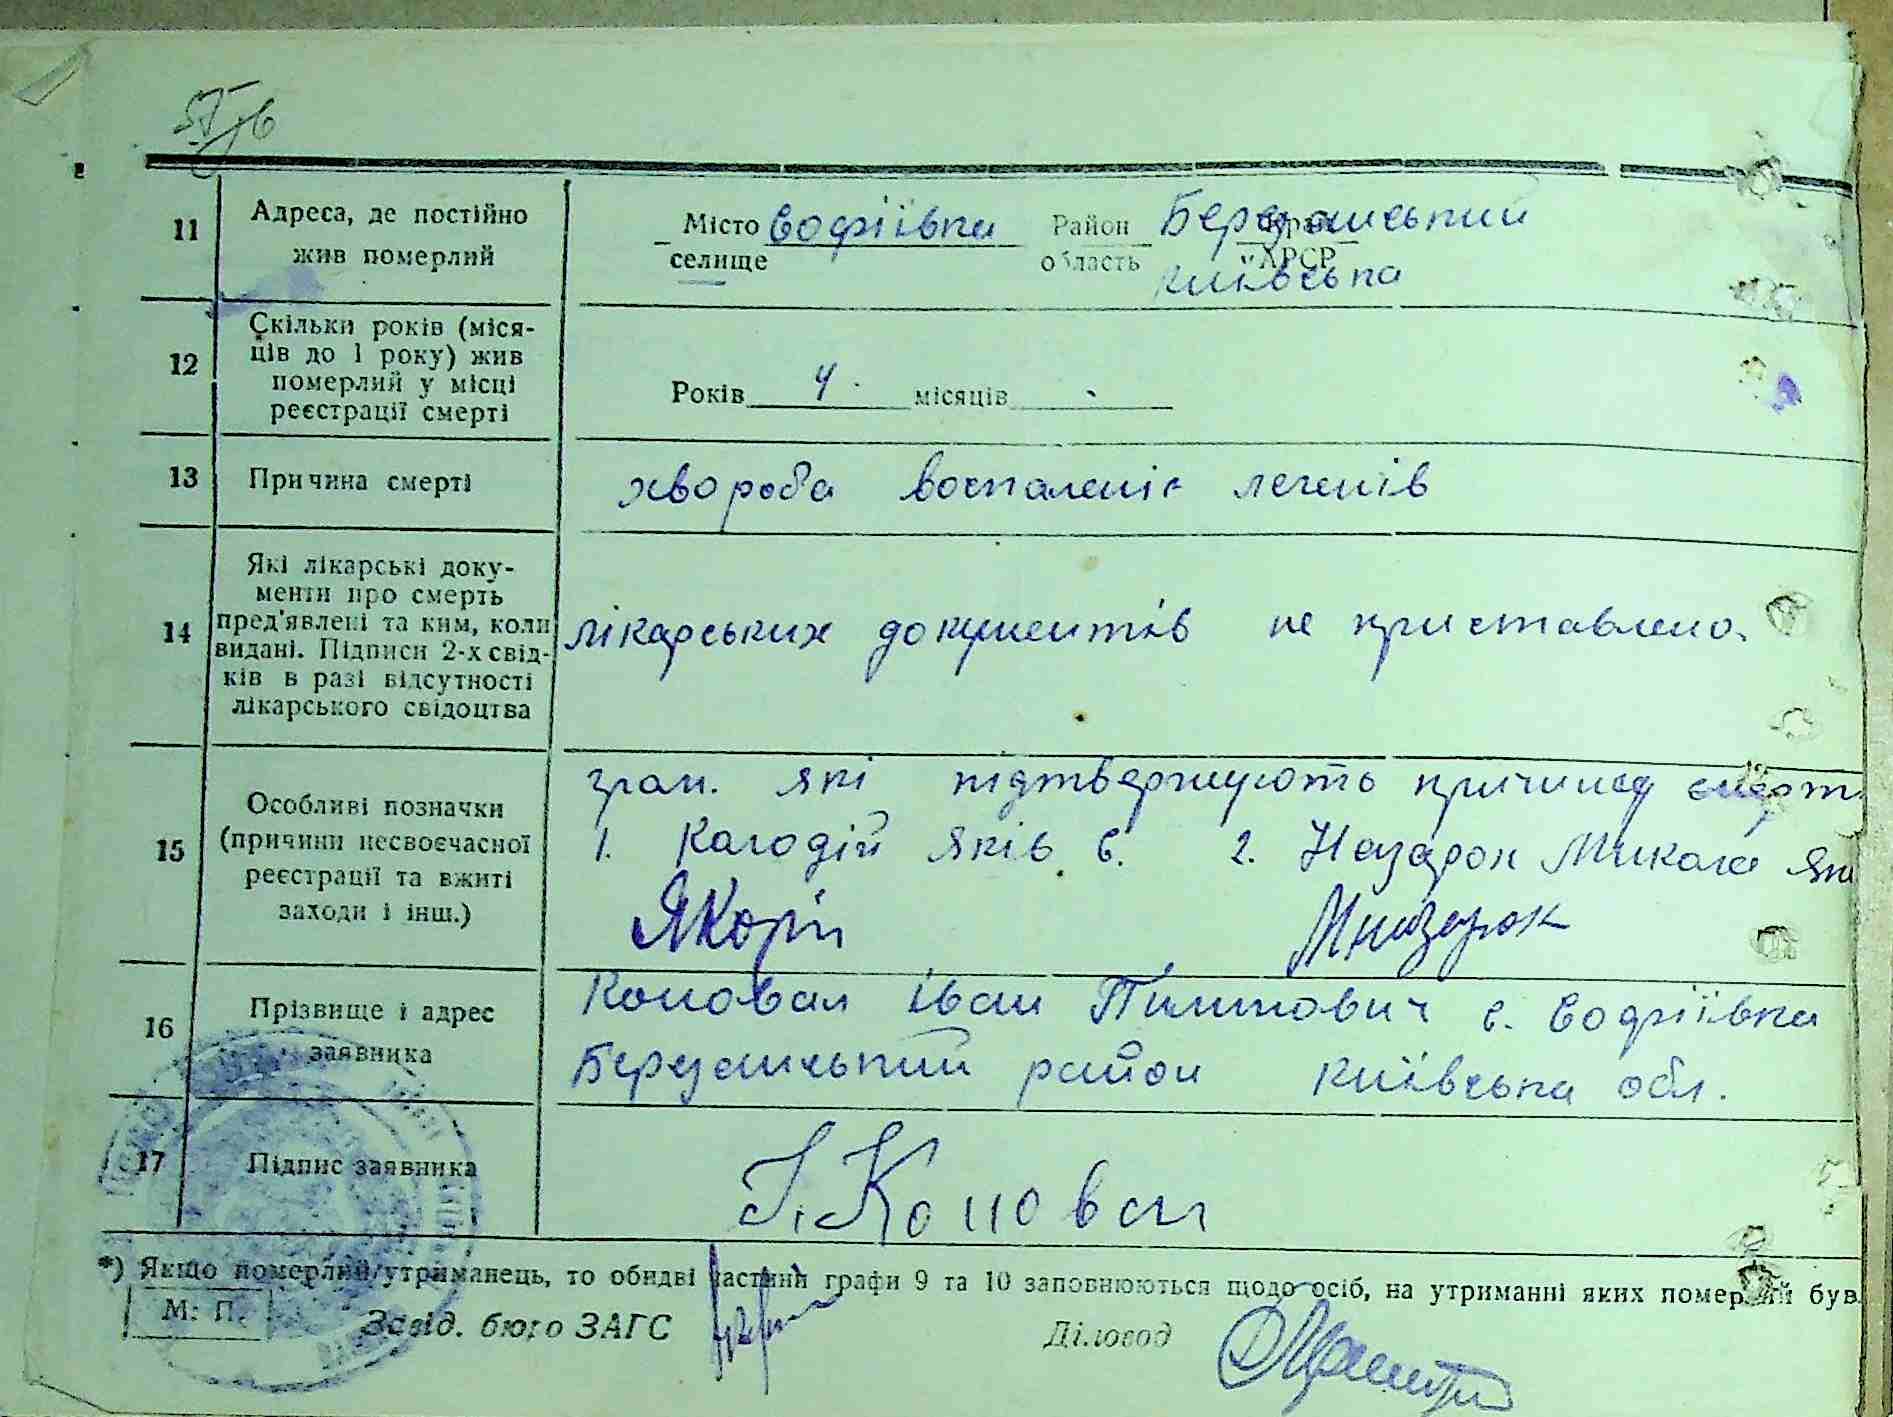 11
Адреса, де постійно
жив померлий
Місто Софіївка Район Березанський
селище область Київська
12
Скільки років (міся-
ців до 1 року) жив
померлий у місці
реєстрації смерті
Років 4 місяців
13
Причина смерті
хвороба воспаленіє легенів
14
Які лікарські доку-
менти про смерть
пред'явлені та ким, коли
видані. Підписи 2-х свід-
ків в разі відсутності
лікарського свідоцтва
лікарських документів не приставлено.
15
Особливі позначки
(причини несвоєчасної
реєстрації та вжиті
заходи і інш.)
гром. які підтвержують причину смерт
1. Калодій Яків С. 2. Назарок Микола Як
16
Прізвище і адрес
заявника
Коновал Іван Пилипович с. Софіївка
Березанський район Київська обл.
17
Підпис заявника
І. Коновал
*) Якщо померлий утриманець, то обидві частини графи 9 та 10 заповнюються щодо осіб, на утриманні яких померлий був.
М. П.
Завід. бюро ЗАГС
Діловод